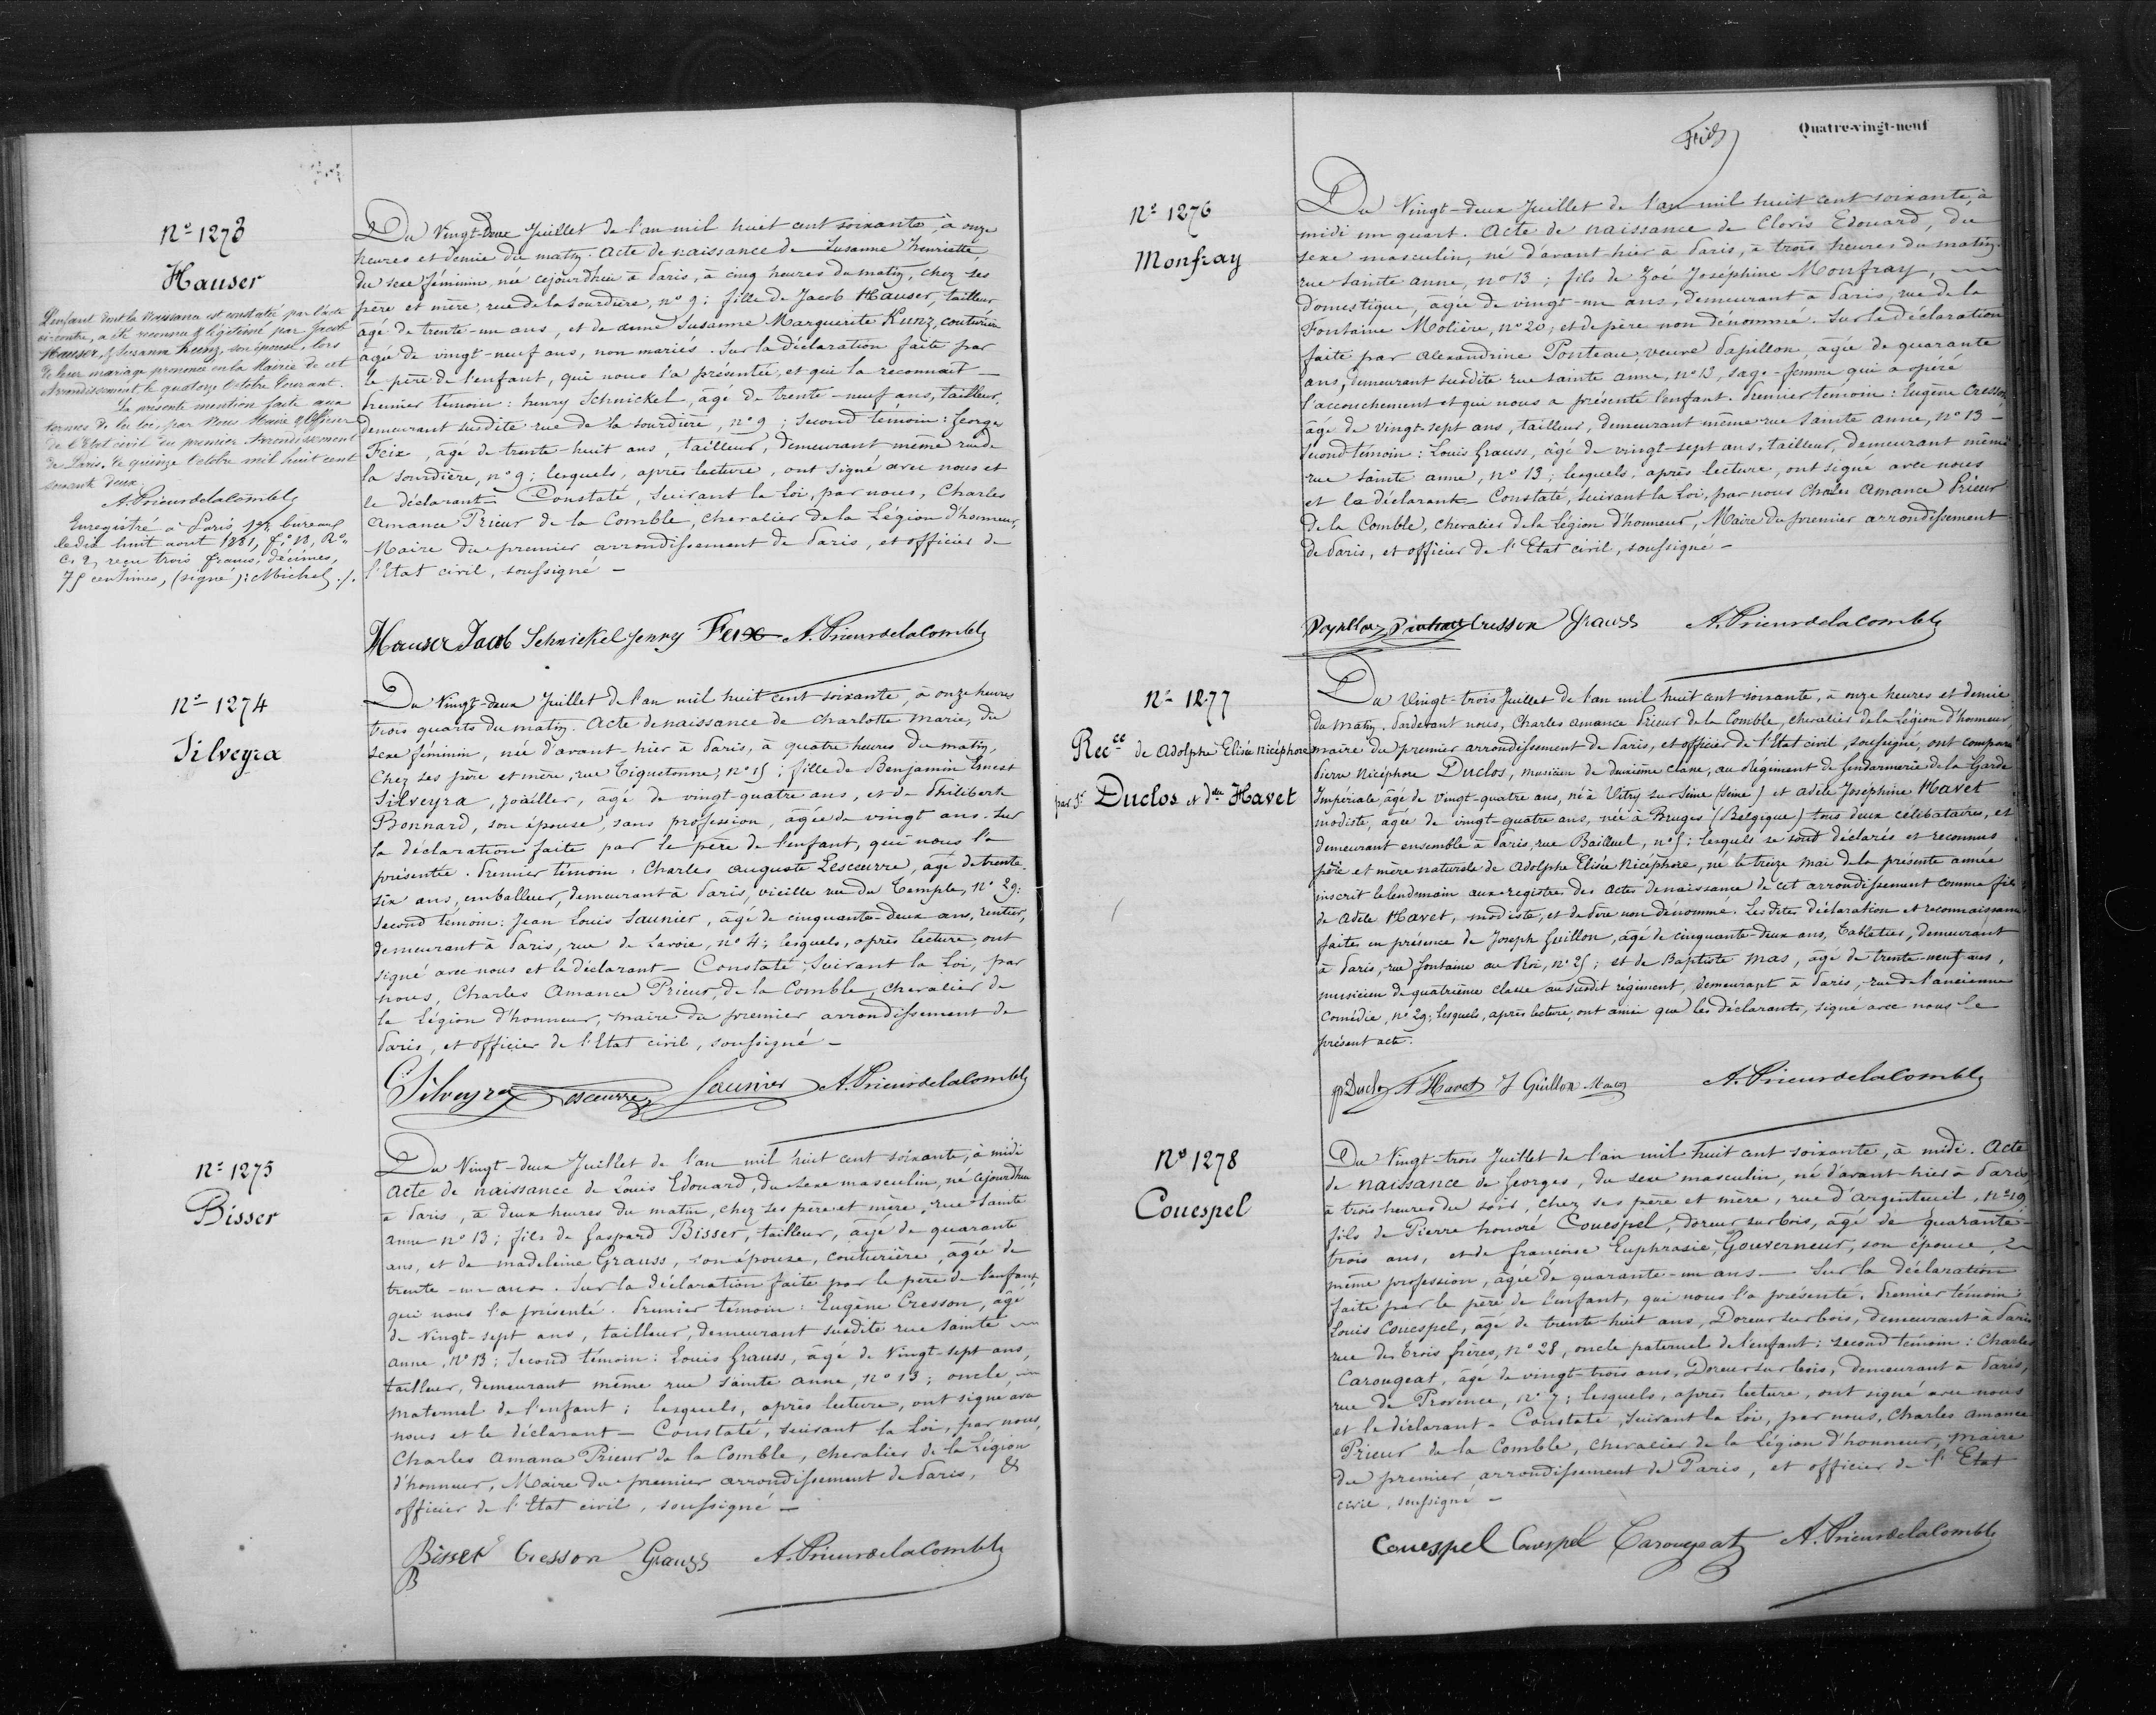 Nº 1273
Hauser
L'enfant dont la naissance est constatée par l'acte
ci-contre, a été reconnu & légitimé par Jacob
Hauser, & Susanne Kunz, son épouse, lors
de leur mariage prononcé en la Mairie de cet
Arrondissement le quatorze Octobre Courant.
La présente mention faite aux
termes de la loi, par Nous Maire & Officier
de l'Etat civil du premier Arrondissement
de Paris, le quinze Octobre mil huit cent
soixante deux.
A. Prieur de la Comble
Enregistré à Paris, 1er bureau
le dix huit aout 1881, fº 18, Rº
C. 2, reçu trois francs, décimes,
75 centimes, (signé): Michel ./.
Du Vingt-Deux Juillet de l'an mil huit cent soixante, à onze
heures et demie du matin. Acte de naissance de Susanne henriette,
du sexe féminin, née cejourdhui à Paris, à cinq heures du matin, chez ses
père et mère, rue de la sourdière, nº 9; fille de Jacob Hauser, tailleur
âgé de trente-un ans, et de Anne Susanne Marguerite Kunz, couturière
âgée de vingt-neuf ans, non mariés. Sur la déclaration faite par
le père de l'enfant, qui nous l'a présentée, et qui la reconnait —
Premier témoin: henry Schnickel, âgé de trente-neuf ans, tailleur,
demeurant susdite rue de la sourdière, nº 9; Second témoin: George
Feix, âgé de trente-huit ans, tailleur, demeurant même rue de
la sourdière, nº 9; lesquels, après lecture, ont signé avec nous et
le déclarant — Constaté, Suivant la Loi, par nous, Charles
Amance Prieur de la Comble, chevalier de la Légion d'honneur,
Maire du premier arrondissement de Paris, et officier de
l'Etat civil, soussigné —
Hauser Jacob Schnickel henry Feix A. Prieur de la Comble
Nº 1274
Silveyra
Du Vingt-deux Juillet de l'an mil huit cent soixante, à onze heures
trois quarts du matin. Acte de naissance de Charlotte Marie, du
sexe féminin, née d'avant-hier à Paris, à quatre heures du matin,
Chez ses père et mère, rue Tiquetonne, nº 15; fille de Benjamin Ernest
Silveyra, joailler, âgé de vingt-quatre ans, et de Philiberte
Bonnard, son épouse, sans profession, âgée de vingt ans. Sur
la déclaration faite par le père de l'enfant, qui nous l'a
présentée. Premier témoin: Charles auguste Lescoeurre, âgé de trente-
six ans, emballeur, demeurant à Paris, vieille rue du Temple, Nº 29:
Second témoin: Jean Louis Saunier, âgé de cinquante-deux ans, rentier,
demeurant à Paris, rue de Savoie, nº 4; lesquels, après lecture, ont
signé avec nous et le déclarant — Constaté, Suivant la Loi, par
nous, Charles Amance Prieur, de la Comble, chevalier de
la Légion d'honneur, maire du premier arrondissement de
Paris, et officier de l'Etat civil, soussigné —
Silveyra Lescoeurre Saunier A. Prieur de la Comble
Nº 1275
Bisser
Du Vingt-deux Juillet de l'an mil huit cent soixante, à midi
Acte de naissance de Louis Edouard, du sexe masculin, né cejourdhui
à Paris, à deux heures du matin, chez ses père et mère, rue Sainte
anne nº 13; fils de Gaspard Bisser, tailleur, âgé de quarante
ans, et de madeleine Grauss, son épouse, couturière, âgée de
trente-un ans. Sur la déclaration faite par le père de l'enfant
qui nous l'a présenté. Premier témoin: Eugène Cresson, âgé
de Vingt-sept ans, tailleur, demeurant susdite rue Sainte
anne, Nº 13; Second témoin: Louis Grauss, âgé de Vingt-sept ans,
tailleur, demeurant même rue Sainte anne, nº 13; oncle
maternel de l'enfant; lesquels, après lecture, ont signé avec
nous et le déclarant — Constaté, suivant la Loi, par nous,
Charles Amance Prieur de la Comble, chevalier de la Légion
d'honneur, Maire du premier arrondissement de Paris, &
officier de l'Etat civil, soussigné —
Bisser Cresson Grauss A. Prieur de la Comble
Quatre-vingt-neuf
Nº 1276
Monfray
Du Vingt-deux Juillet de l'an mil huit cent soixante, à
midi un quart. Acte de naissance de Clovis Edouard, du
sexe masculin, né d'avant-hier à Paris, à trois heures du matin
rue Sainte anne, nº 13; fils de Zoé Joséphine Monfray,
domestique, âgée de vingt-un ans, demeurant à Paris, rue de la
Fontaine Molière, nº 20; et de père non dénommé. Sur la déclaration
faite par Alexandrine Ponteau, veuve Papillon, âgée de quarante
ans, demeurant susdite rue Sainte anne, nº 13, sage-femme qui a opéré
l'accouchement et qui nous a présenté l'enfant. Premier témoin: Eugène Cresson
âgé de vingt-sept ans, tailleur, demeurant même rue Sainte anne, nº 13 —
Second témoin: Louis Grauss, âgé de vingt-sept ans, tailleur, demeurant même
rue Sainte anne, nº 13; lesquels, après lecture, ont signé avec nous
et la déclarante — Constaté, suivant la Loi, par nous Charles Amance Prieur
de la Comble, chevalier de la Légion d'honneur, Maire du premier arrondissement
de Paris, et officier de l'Etat civil, soussigné —
Cresson Grauss A. Prieur de la Comble
Nº 1277
Recce de Adolphe Elisée Nicéphore
par Sr Duclos et Dlle Havet
Du Vingt-trois Juillet de l'an mil huit cent soixante, à onze heures et demie
du matin. Pardevant nous, Charles Amance Prieur de la Comble, chevalier de la Légion d'honneur
maire du premier arrondissement de Paris, et officier de l'Etat civil, soussigné, ont comparu
Pierre Nicéphore Duclos, musicien de deuxième classe, au Régiment de Gendarmerie de la Garde
Impériale, âgé de Vingt-quatre ans, né à Vitry sur Seine (Seine) et Adèle Joséphine Havet
modiste, âgée de vingt-quatre ans, née à Bruges (Belgique) tous deux célibataires, et
demeurant ensemble à Paris, rue Bailleul, nº 5; lesquels se sont déclarés et reconnus
père et mère naturels de Adolphe Elisée Nicéphore, né le treize mai de la présente année
inscrit le lendemain aux registres des actes de naissance de cet arrondissement comme fils
de Adèle Havet, modiste, et de Père non dénommé. Lesdites déclaration et reconnaissance
faites en présence de Joseph Guillon, âgé de cinquante-deux ans, Tabletier, demeurant
à Paris, rue fontaine au Roi, nº 25; et de Baptiste Mas, âgé de trente-neuf ans,
musicien de quatrième classe au susdit régiment, demeurant à Paris, rue de l'ancienne
Comédie, nº 29; lesquels, après lecture, ont ainsi que les déclarants, signé avec nous le
présent acte.
Duclos A Havet J Guillon Mas A. Prieur de la Comble
Nº 1278
Couespel
Du Vingt-trois Juillet de l'an mil huit cent soixante, à midi. Acte
de naissance de Georges, du sexe masculin, né d'avant-hier à Paris
à trois heures du soir, chez ses père et mère, rue d'argenteuil, Nº 19
fils de Pierre honoré Couespel, doreur sur bois, âgé de quarante-
trois ans, et de françoise Euphrasie Gouverneur, son épouse,
même profession, âgée de quarante-un ans — Sur la déclaration
faite par le père de l'enfant, qui nous l'a présenté. Premier témoin:
Louis Couespel, âgé de trente-huit ans, Doreur sur bois, demeurant à Paris
rue des Trois frères, nº 28, oncle paternel de l'enfant: second témoin: Charles
Carougeat, âgé de vingt-trois ans, Doreur sur bois, demeurant à Paris,
rue de Provence, nº 7; lesquels, après lecture, ont signé avec nous
et le déclarant — Constaté, Suivant la Loi, par nous, Charles Amance
Prieur de la Comble, chevalier de la Légion d'honneur, maire
du premier arrondissement de Paris, et officier de l'Etat
civil, soussigné —
Couespel Couespel Carougeat A. Prieur de la Comble